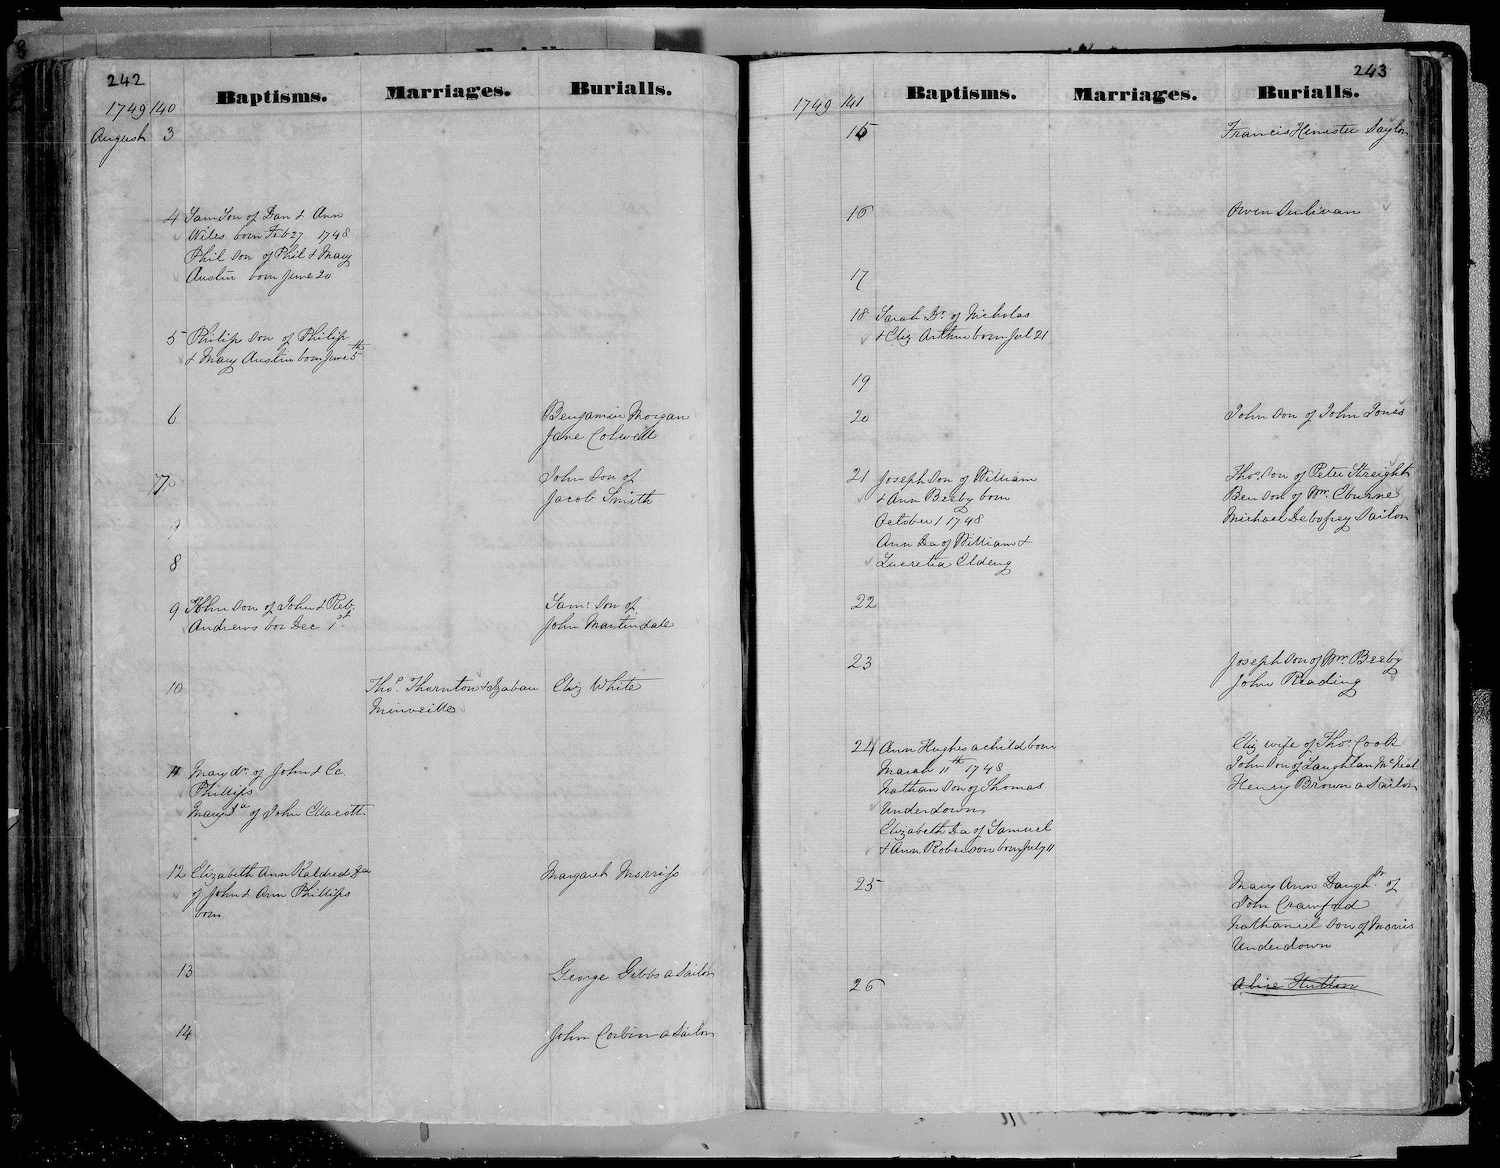 242
1749 140
Baptisms.
Marriages.
Burialls.
August 3
4 Sam Son of Dan & Ann
Wiles born Feb 27 1748
Phil Son of Phil & Mary
Austin born June 20
5 Philip Son of Philip
& Mary Austin born June 5th
6
Benjamin Morgan
Jane Colwell
7
John Son of
Jacob Smith
8
9 John Son of John & Reb.
Andrews bor Dec 1st
Saml Son of
John Martindale
10
Thos. Thornton &
Minveille
Eliz White
11 Mary dr. of John &
Phillips
Mary Da of John
12 Elizabeth Ann Kaldred Da
of John & Ann Phillips
born
Margaret Morriss
13
George Gibbs a Sailor
14
John Corbin a Sailor
243
1749 141
Baptisms.
Marriages.
Burialls.
15
Francis Saylor
16
Owen Sulivan
17
18 Sarah Dr. of Nicholas
& Eliz Arthur born Jul 21
19
20
John Son of John Jones
21 Joseph Son of William
& Ann Beeby born
October 1 1748
Ann Da of William &
Lucretia Eldeng
Thos. Son of Peter Streight
Ben Son of Wm.
Michael Sailor
22
23
Joseph Son of Wm Beeby
John Reading
24 Ann Hughes a child born
March 11th 1748
Nathan Son of Thomas
Underdown
Elizabeth Da of Samuel
& Ann Roberson born July 11
Eliz wife of Thos. Cook
John Son of Laughlan McNeal
Henry Brown a Sailor
25
Mary Ann Daughtr. of
John Crawford
Nathaniel Son of Morris
Underdown
26
Alice Hutton